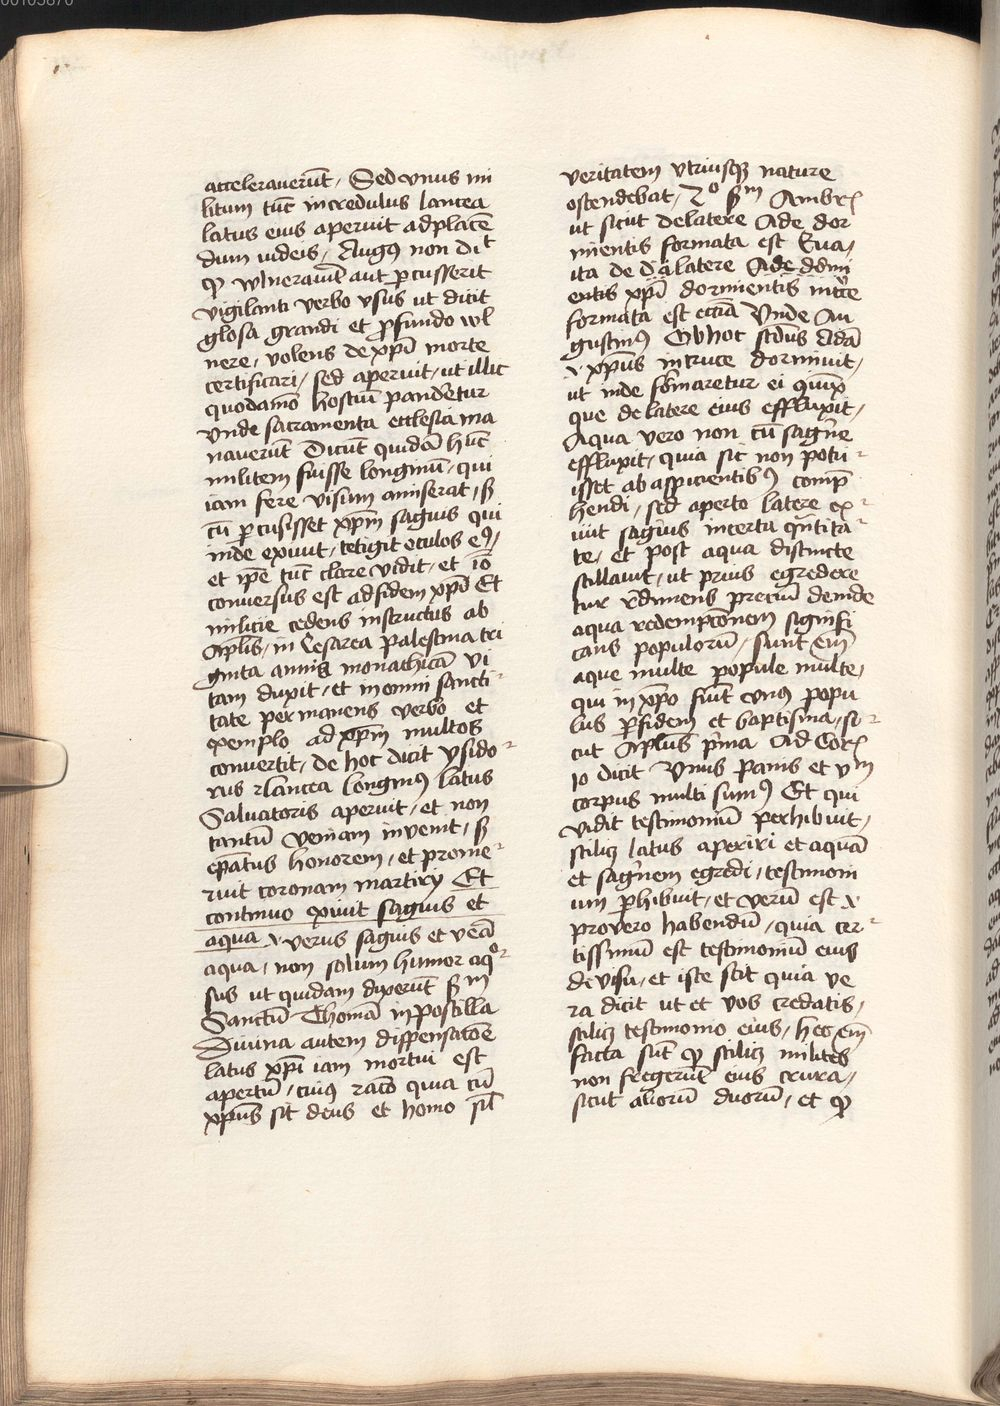 accelerauerūt, Sed vnus mi
litum tūc incredulus lancea
latus eius aperuit ad placē
dum iudeis, Augꝰ non diᵗ
ꝙ wlnerauit aut ꝑcusserit
vigilanti verbo vsus ut dicit
glosa grandi et ꝓfundo wl
nere, volens de xp̄i morte
certificari, sed aperuit, ut illic
quodāmō hostiū panderetur
Vnde sacramenta ecclesia ma
nauerūt Dicūt quidā hūc
militem fuisse longinū, qui
iam fere visum amiserat, sꝫ
cū ꝑcusisset xp̄m sagwis qui
inde exiuit, tetigit oculos eꝰ,
et ip̄e tūc clare vidit, et iō
conuersus est ad fidem xp̄i Et
militie cedens instructus ab
Apl̄is, in Cesarea Palestina tri
ginta annis monachicā vi
tam duxit, et in omni sancti
tate permanens verbo et
exemplo ad xp̄m multos
conuertit, de hoc dicit ysido
rus lancea longinꝰ latus
Saluatoris aperuit, et non
tantū veniam inuenit, sꝫ
ep̄atus honorem, et prome
ruit coronam martirij Et
continuo exiuit sagwis et
aqua verus sagwis et v̄ea
aqua, non solum humor aqᵒ
sus ut quidam dixerūt sm̄
Sanctū Thomā in postilla
Diuina autem dispensacōe
latus xp̄i iam mortui est
apertū, cuiꝰ racō quia cū
xp̄us sit deus et homo sil̄
veritatem vtriusqꝫ nature
ostendebat, 2ᵒ sm̄ Ambrꝭ
ut sicut de latere Ade dor
mientis formata est Eua,
ita de latere Ade dormi
entis xp̄i dormientis in cͬce
formata est ecciā Vnde Au
gustinꝰ Ob hoc scd̄us Adā
xp̄us in cruce dormiuit,
ut inde formaretur ei
que de latere eius effluxit,
Aqua vero non cū sagwine
effluxit, quia sic non potu
isset ab aspicientibꝰ comp̄
hendi, sed aperto latere ex
iuit sagwis in certa qn̄tita
te, et post aqua distincte
stillauit, ut prius egredere
tur redimens preciū deinde
aqua redempcōnem signifi
cans populorū, sunt em̄
aque multe popule multe,
qui in xp̄o fiūt vnꝰ popu
lus ꝑ fidem et baptisma, si
cut Apl̄us p̄ma ad Corꝭ
10 dicit Vnus panis et vm̄
corpus multi sumꝰ Et qui
vidit testimoniū perhibuit,
scilicꝫ latus aperiri et aquā
et sagwinem egredi, testimoni
um ꝑhibuit, et verū est
pro vero habendū, quia cer
tissimū est testimoniū eius
de visu, et iste scit quia ve
ra dicit ut et vos credatis,
scilicꝫ testimonio eius, hec em̄
facta sūt ꝙ scilicꝫ milites
non fregerūt eius crura,
sicut aliorū duorū, et ꝙ